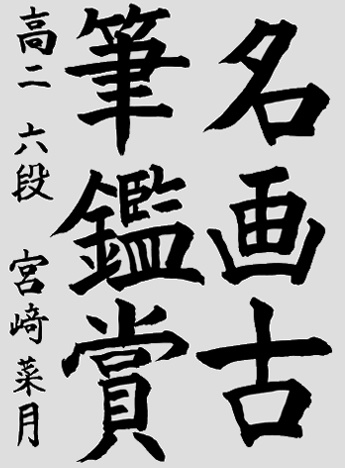 名画古
筆鑑賞
高二 六段 宮﨑菜月